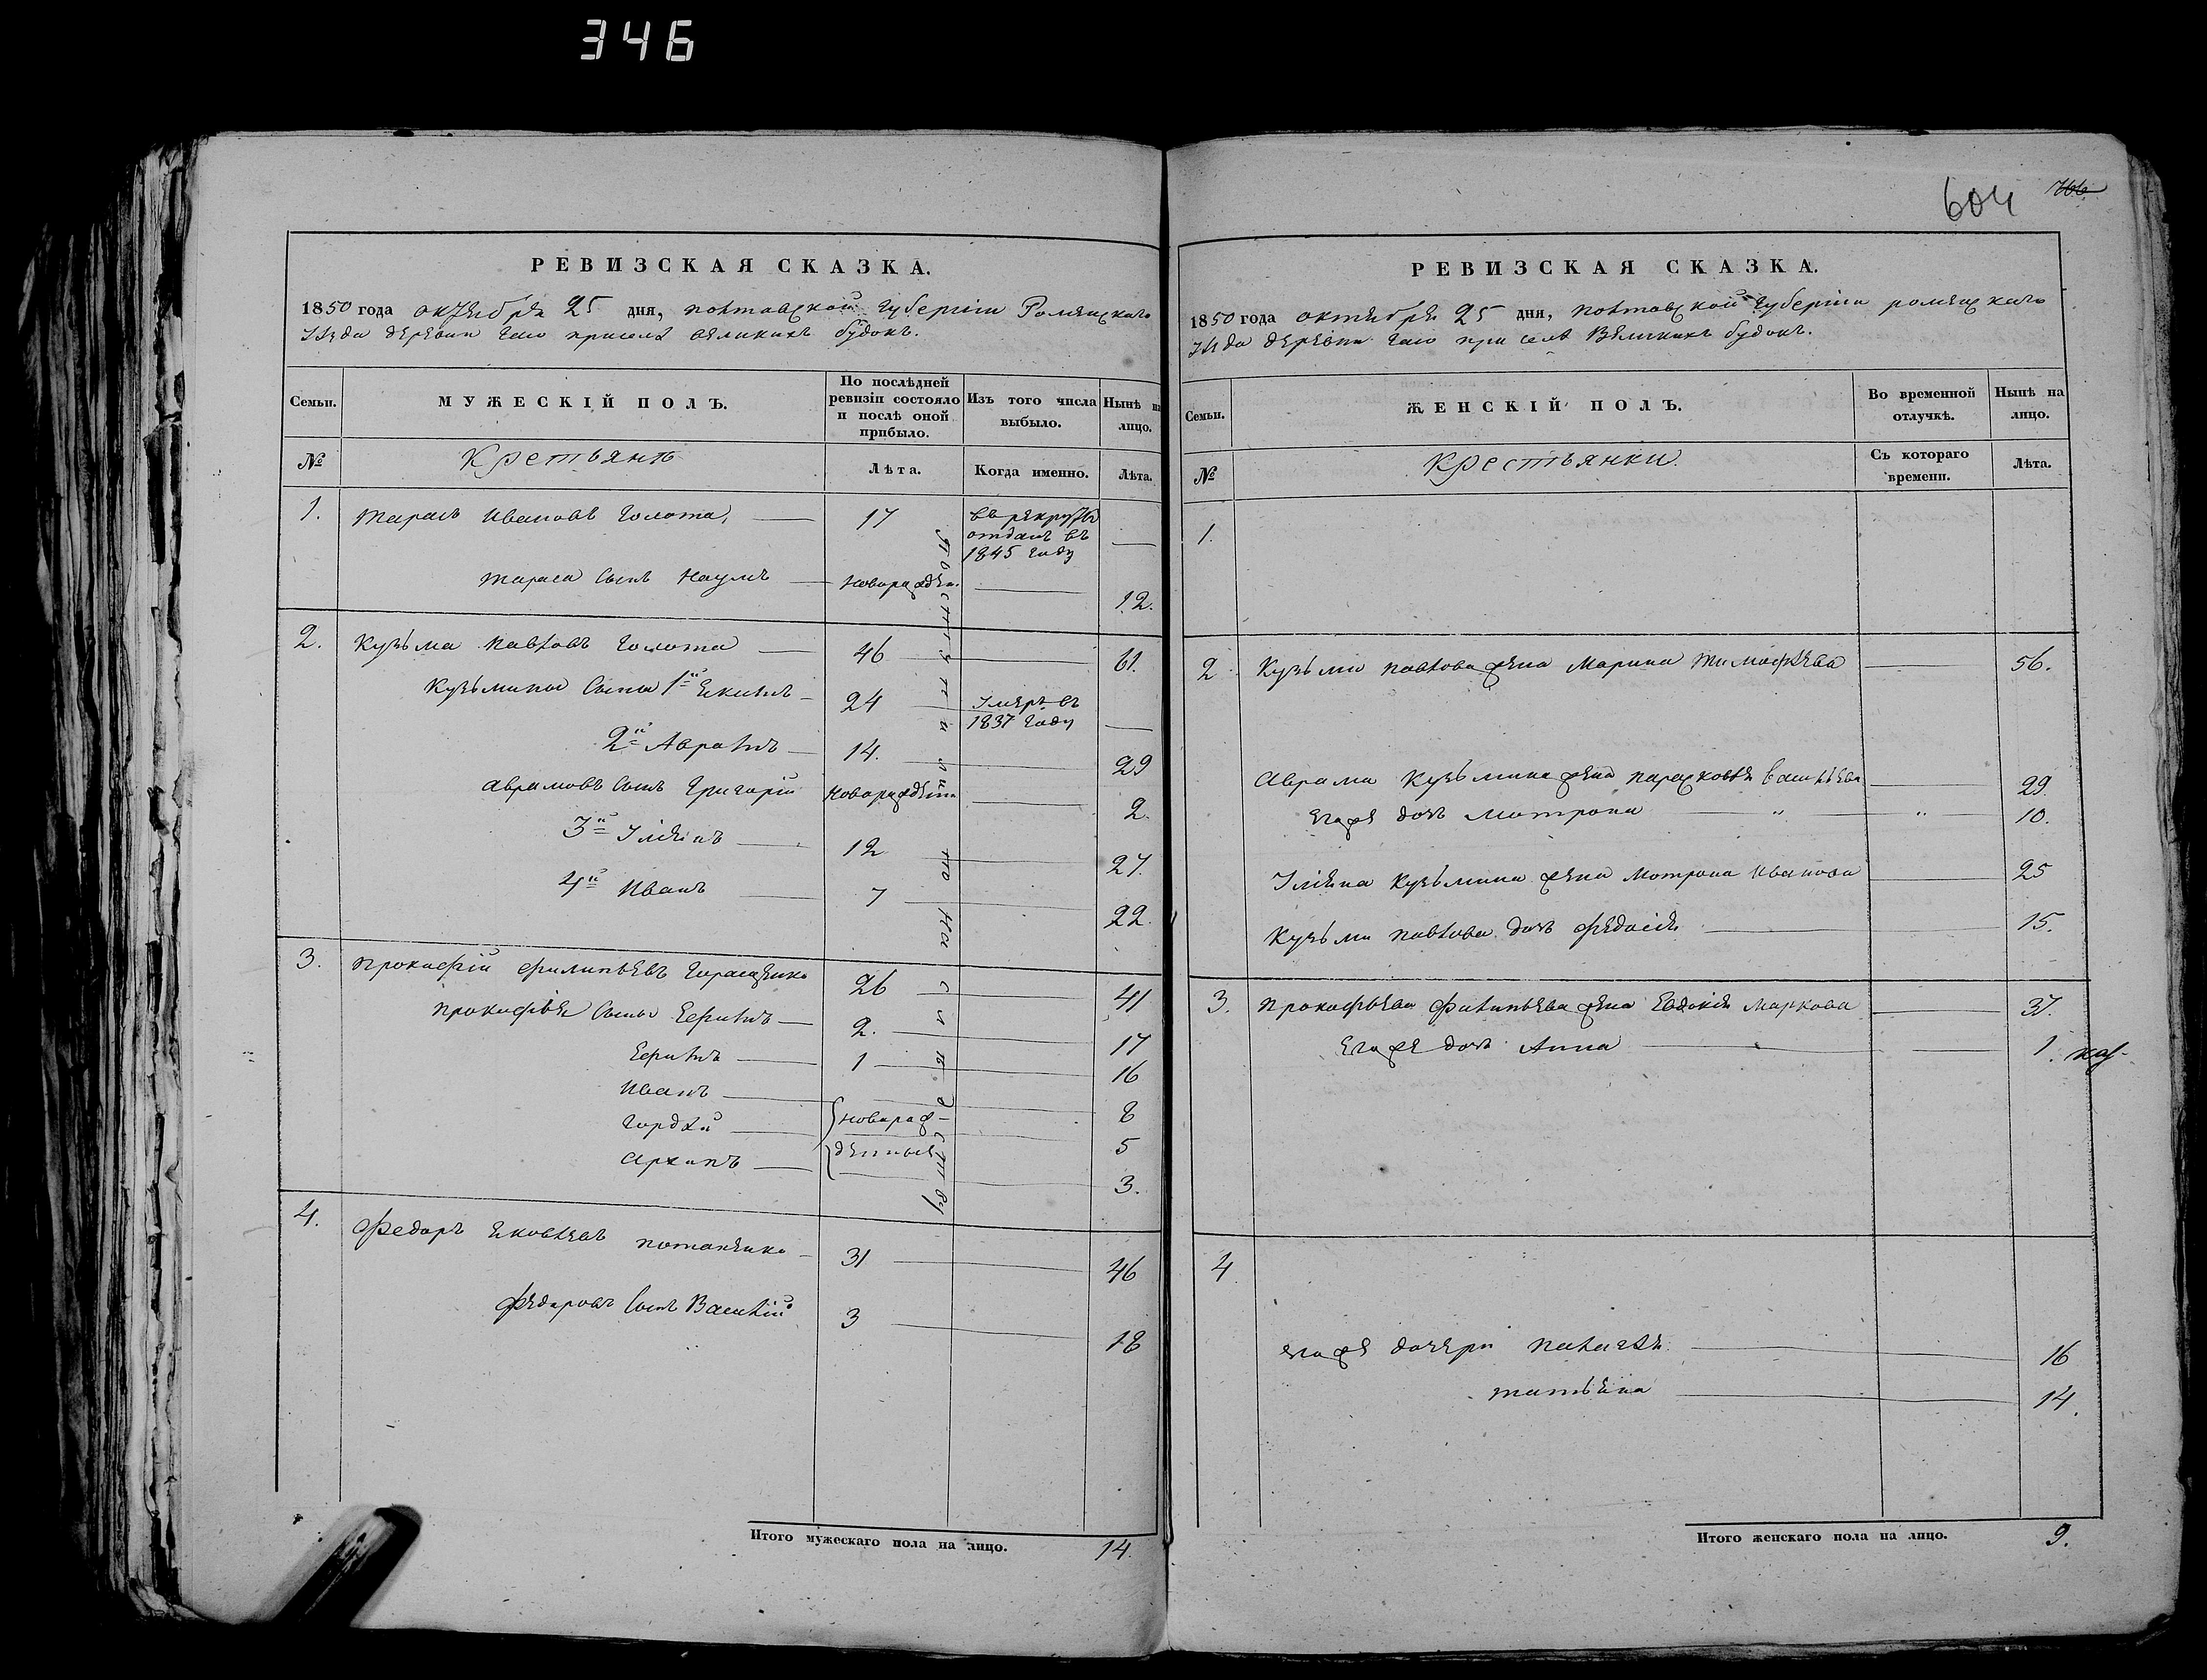 346
РЕВИЗСКАЯ СКАЗКА.
1850 года октября 25 дня, полтавской губернiи Роменскаго
уѣзда деревни Гаю приселѣ великихъ будокъ.
Семьи.
МУЖЕСКІЙ ПОЛЪ.
По послѣдней ревизіи состояло и послѣ оной прибыло.
Изъ того числа выбыло.
Нынѣ на лицо.
№
Крестьянъ
Лѣта.
Когда именно.
Лѣта.
1. Тарасъ Ивановъ Голота, 17 въ рекруты отданъ въ 1845 году
Тараса сынъ Наумъ новорожден. 12.
2. Кузьма Павловъ Голота 46 61.
Кузьмины сыны 1й Екимъ 24 Умеръ въ 1837 году
2й Аврамъ 14. 29
Аврамовъ сынъ Григорiй новорожденн 2.
3й Улiянъ 12 27.
4й Иванъ 7 22.
3. Прокофiй Филипьевъ Гаращенко 26 41
Прокофiя сыны Ефимъ 2. 17
Ефимъ 1 16
Иванъ 8
Гордѣй новорож- 5
Архипъ денные 3.
4. Федоръ Яковлевъ Потапенко 31 46
Федоровъ сынъ Василiй 3 18
Поступили по наслѣдству
Итого мужескаго пола на лицо. 14.
604
РЕВИЗСКАЯ СКАЗКА.
1850 года октября 25 дня, полтавской губернiи роменскаго
уѣзда деревни Гаю при селѣ Великихъ будокъ.
Семьи.
ЖЕНСКІЙ ПОЛЪ.
Во временной отлучкѣ.
Нынѣ на лицо.
№
Крестьянки.
Съ котораго времени.
Лѣта.
1.
2 Кузьмы Павлова жена Марина Тимофѣева 56.
Аврама Кузьмина жена Парасковѣя Васильева 29.
Егоже дочь Мотрона " " 10.
Улiяна Кузьмина жена Мотрона Иванова 25
Кузьмы Павлова дочь Федосiя 15.
3. Прокофьева Филипьева жена Евдокiя Маркова 37.
Егоже дочь Анна 1.
4.
егоже дочери Палагѣя 16
Татьяна 14.
Итого женскаго пола на лицо. 9.